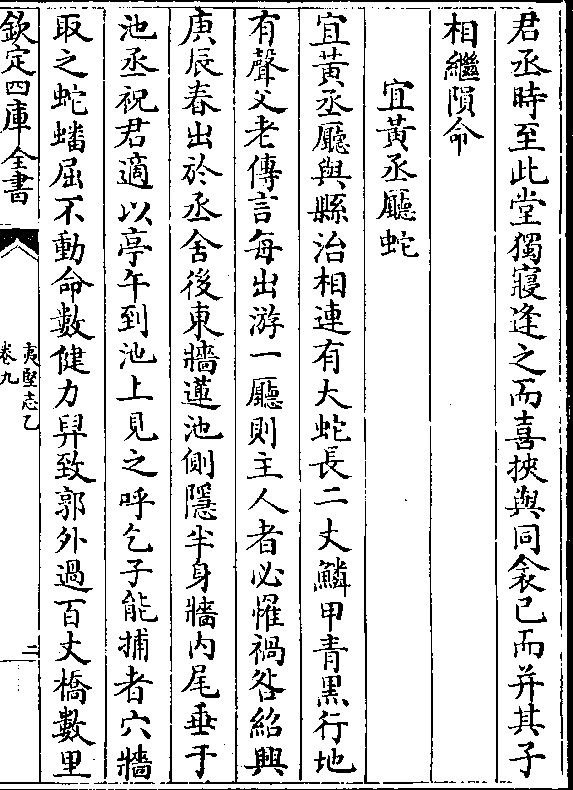 君丞時至此堂獨寢逢之而喜挾與同衾已而并其子
相繼隕命
宜黃丞廳蛇
宜黃丞廳與縣治相連有大蛇長二丈鱗甲青黑行地
有聲父老傳言每出游一廳則主人者必罹禍咎紹興
庚辰春出於丞舍後東牆蓮池側隱半身牆内尾垂于
池丞祝君適以亭午到池上見之呼乞子能捕者穴牆
取之蛇蟠屈不動命數健力舁致郭外過百丈橋數里
欽定四庫全書
夷堅志乙
卷九
二